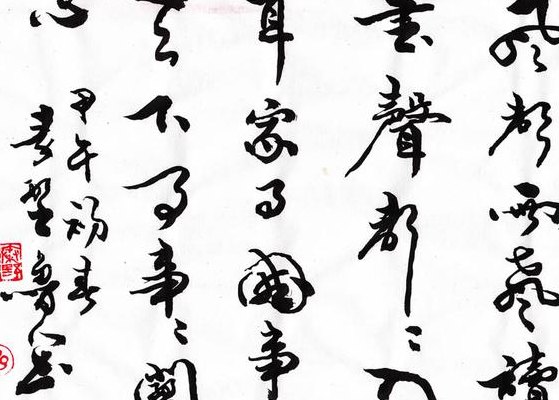 風聲雨聲讀
書聲聲々入
耳家事國事
天下事事々關
心
甲午初春